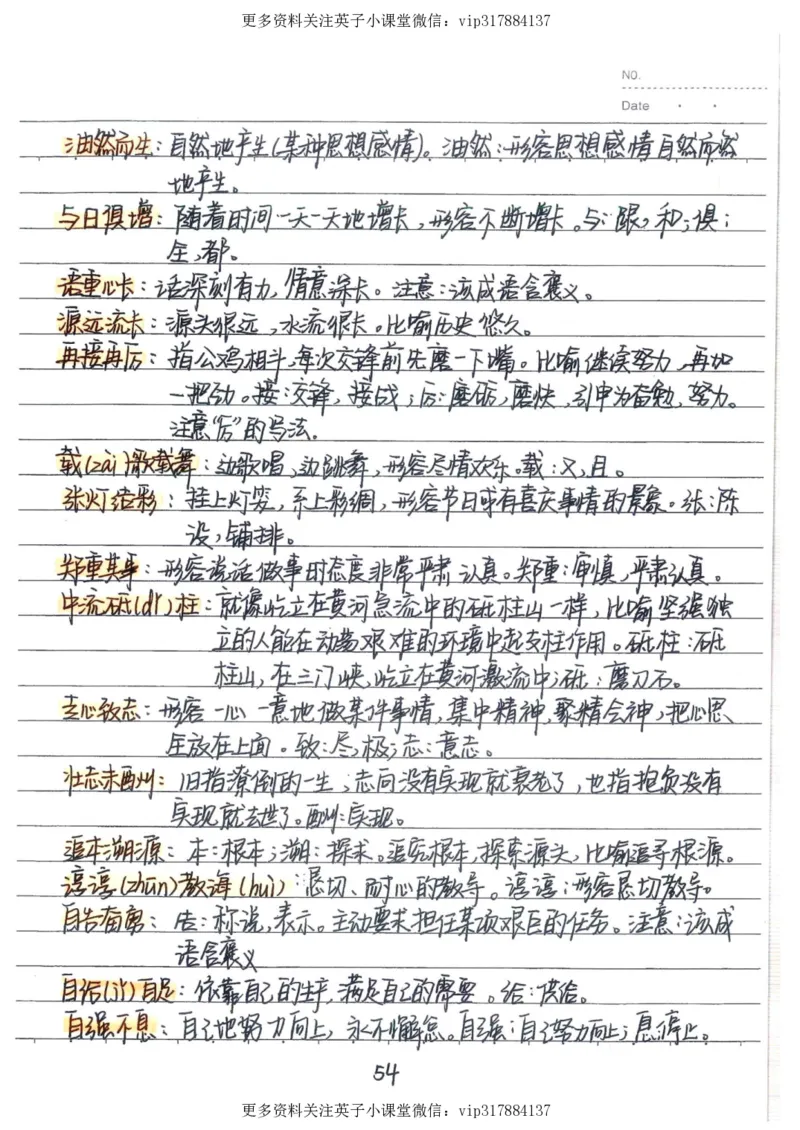 更多资料关注英子小课堂微信：vip317884137
NO.
Date
油然而生：自然地产生(某种思想感情)。油然：形容思想感情自然而然
地产生。
与日俱增：随着时间一天一天地增长，形容不断增长。与：跟，和；俱：
全，都。
语重心长：话深刻有力，情意深长。注意：该成语含褒义。
源远流长：源头很远，水流很长。比喻历史悠久。
再接再厉：指公鸡相斗，每次交锋前先磨一下嘴。比喻继续努力，再加
一把劲。接：交锋，接战；厉：磨砺，磨快，引申为奋勉、努力。
注意"厉"的写法。
载(zài)歌载舞：边歌唱，边跳舞，形容尽情欢乐。载：又，且。
张灯结彩：挂上灯笼，系上彩绸，形容节日或有喜庆事情的景象。张：陈
设，铺排。
郑重其事：形容说话做事时态度非常严肃认真。郑重：审慎，严肃认真。
中流砥(dǐ)柱：就像屹立在黄河急流中的砥柱山一样，比喻坚强独
立的人能在动荡艰难的环境中起支柱作用。砥柱：砥
柱山，在三门峡，屹立在黄河激流中；砥：磨刀石。
专心致志：形容一心一意地做某件事情，集中精神，聚精会神，把心思
全放在上面。致：尽，极；志：意志。
壮志未酬：旧指潦倒的一生，志向没有实现就衰老了，也指抱负没有
实现就去世了。酬：实现。
追本溯源：本：根本；溯：探求。追究根本，探索源头，比喻追寻根源。
谆谆(zhūn)教诲(huì)：恳切、耐心的教导。谆谆：形容恳切教导。
自告奋勇：告：称说，表示。主动要求担任某项艰巨的任务。注意：该成
语含褒义
自给(jǐ)自足：依靠自己的生产，满足自己的需要。给：供给。
自强不息：自己地努力向上，永不懈怠。自强：自己努力向上；息：停止。
54
更多资料关注英子小课堂微信：vip317884137